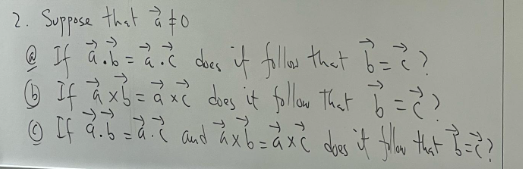 2. Suppose that a⃗ ≠ 0
ⓐ If a⃗ · b⃗ = a⃗ · c⃗ does it follow that b⃗ = c⃗ ?
ⓑ If a⃗ × b⃗ = a⃗ × c⃗ does it follow that b⃗ = c⃗ ?
ⓒ If a⃗ · b⃗ = a⃗ · c⃗ and a⃗ × b⃗ = a⃗ × c⃗ does it follow that b⃗ = c⃗ ?